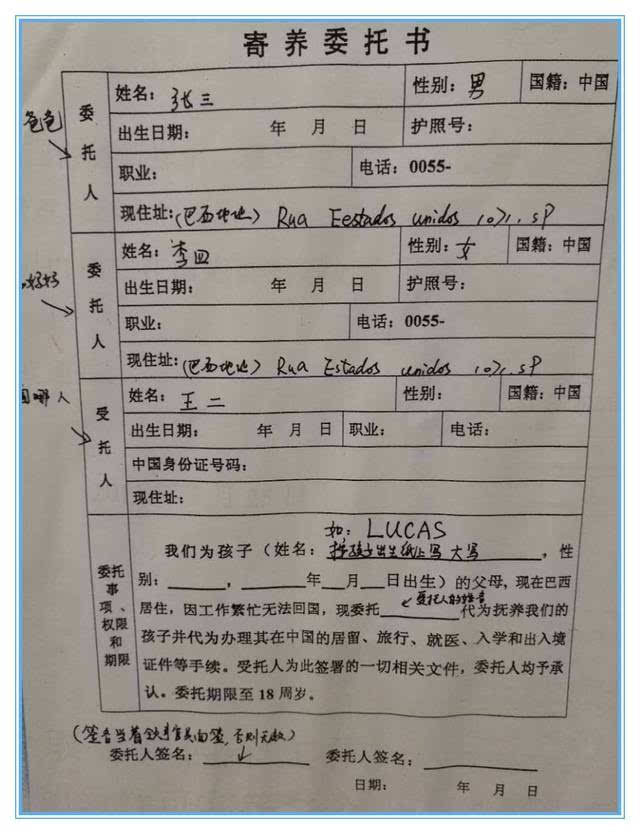 寄养委托书
爸爸
委托人
姓名：张三 性别：男 国籍：中国
出生日期： 年 月 日 护照号：
职业： 电话：0055-
现住址：(巴西地址) Rua Eestados unidos 1071. SP
妈妈
委托人
姓名：李四 性别：女 国籍：中国
出生日期： 年 月 日 护照号：
职业： 电话：0055-
现住址：(巴西地址) Rua Estados unidos 1071. SP
国哪人
受托人
姓名：王二 性别： 国籍：中国
出生日期： 年 月 日 职业： 电话：
中国身份证号码：
现住址：
委托事项、权限和期限
如：LUCAS
我们为孩子（姓名：按孩子出生纸上写 大写，性
别：____，____年__月__日出生）的父母，现在巴西
受托人的姓名
居住，因工作繁忙无法回国，现委托____代为抚养我们的
孩子并代为办理其在中国的居留、旅行、就医、入学和出入境
证件等手续。受托人为此签署的一切相关文件，委托人均予承
认。委托期限至18周岁。
否则无效)
委托人签名： 委托人签名：
日期： 年 月 日